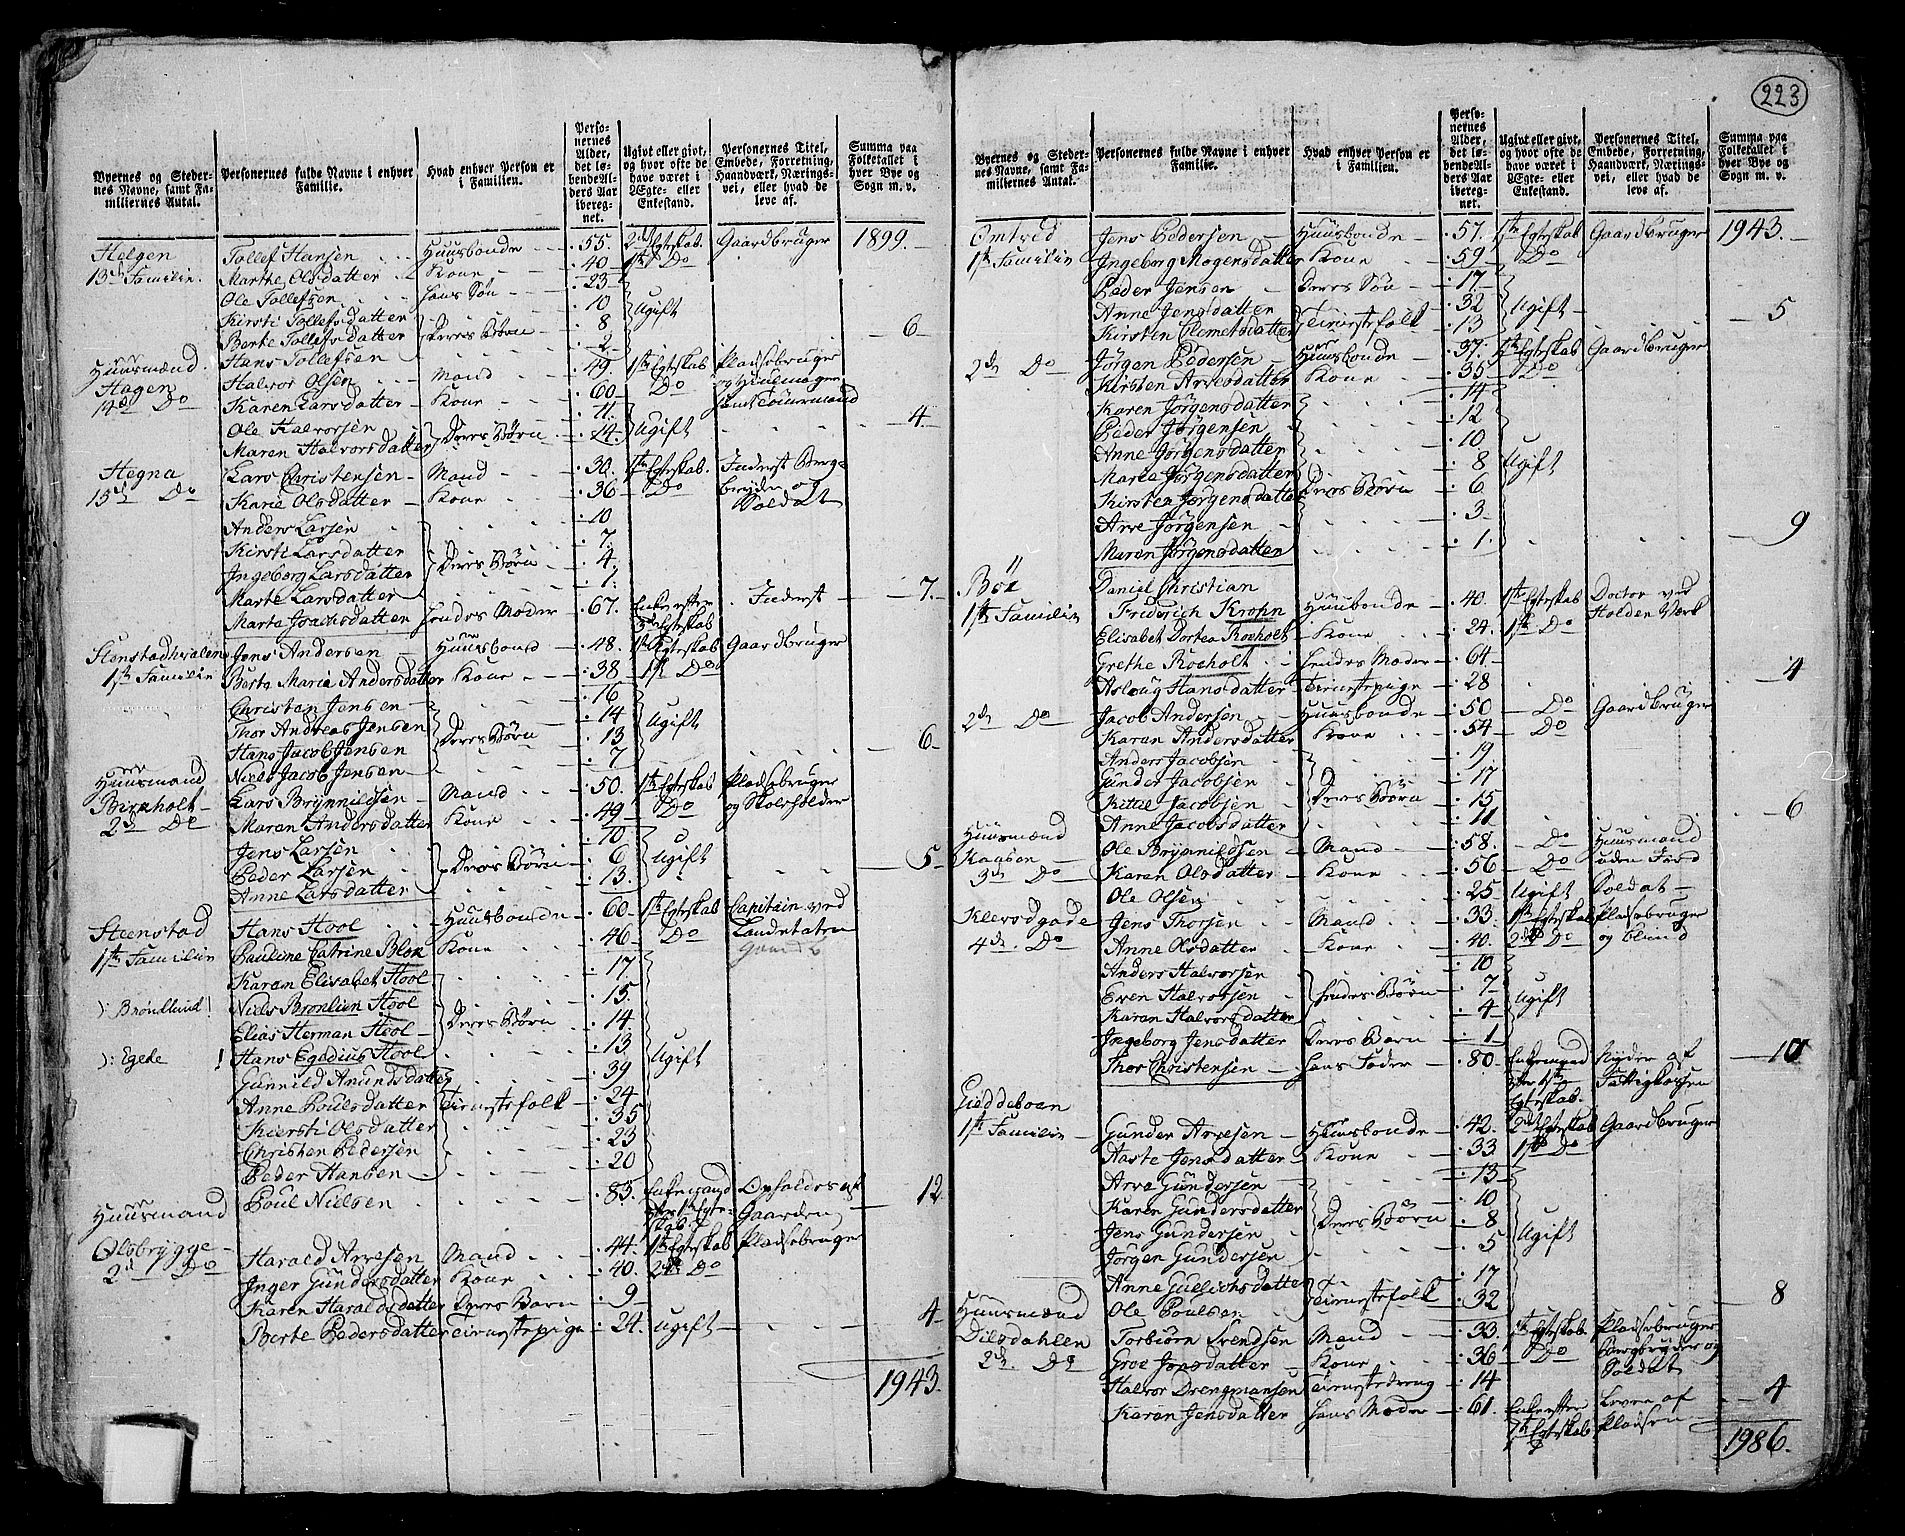 223
Byernes og Stedernes Navne, samt Familiernes Antal.
Personernes fulde Navne i enhver Familie.
Hvad enhver Person er i Familien.
Personernes Alder, det løbende Alders Aar iberegnet.
Ugivt eller givt, og hvor ofte de have været i Ægte- eller Enkestand.
Personernes Titel, Embede, Forretning, Haandværk, Næringsvei, eller hvad de leve af.
Summa paa Folketallet i hver Bye og Sogn m. v.
Helgen Tollef Hansen Huusbonde 55. 2det Egteskab Gaardbruger 1899.
13de Familie. Marthe Olsdatter Kone 40 1ste Do
Ole Tollefsen hans Søn 23
Kirsti Tollefsdatter 10 Ugift
Berte Tollefsdatter Deres Børn 8
Hans Tollefsen 2 6
Huusmænd
Hagen Halvor Olsen Mand 49. 1ste Egteskab Pladsebruger og Huulmager samt Tømmermand
14de Do Karen Larsdatter Kone 60 Do
Ole Halvorsen 11.
Maren Halvorsdatter Deres Børn 24. Ugift 4
Hegna Lars Christensen Mand 30. 1ste Egteskab. Inderst Bergbryder og Soldat
15de Do Karie Olsdatter Kone 36 Do
Anders Larsen 10
Kirsti Larsdatter 7.
Ingeborg Larsdatter Deres Børn 4.
Marte Larsdatter 1.
Marte Isachsdatter hendes Moder 67. Enke efter 3die Egteskab Inderst 7.
Stenstadhvalen Jens Andersen Huusbond 48. 1ste Egteskab Gaardbruger
1ste Familie Berte Maria Andersdatter Kone 38 1st Do
Christen Jensen 16
Thor Andreas Jensen 14 Ugift
Hans Jacob Jensen Deres Børn 13
Niels Jacob Jensen 7 6
Huusmænd
Birkholt Lars Brynnildsen Mand 50. 1ste Egteskab Pladsebruger og Skoleholder
2de Do Maren Andersdatter Kone 49 Do
Jens Larsen 10
Peder Larsen Deres Børn 6 Ugift
Anne Larsdatter 13. 5
Steenstad Hans Hool Huusbonde 60 1ste Egteskab Capitain ved Landetaten
1ste Familie Pauline Catrine Blok Kone 46 Do
Karen Elisabet Hool 17
): Brøndlund! Niels Bronlien Hool 15.
Elias Herman Hool Deres Børn 14
): Egede ! Hans Egedius Hool 13 Ugift
Gunnild Amundsdatter 39
Anne Poulsdatter Tienestefolk 24
Kiersti Olsdatter 35
Christen Pedersen 23
Peder Hansen 20
Poul Nielsen 83. Enkemand efter 1ste Egteskab Opholdes af Gaarden 12
Huusmænd
Olsbrygge Harald Arvesen Mand 44. 1ste Egteskab Pladsebruger
2de Do Inger Gundersdatter Kone 40. 2det Do
Karen Haraldsdatter Deres Barn 9
Berte Pedersdatter Tienestepige 24. Ugift 4
1943.
Byernes og Stedernes Navne, samt Familiernes Antal.
Personernes fulde Navne i enhver Familie.
Hvad enhver Person er i Familien.
Personernes Alder, det løbende Alders Aar iberegnet.
Ugivt eller givt, og hvor ofte de have været i Ægte- eller Enkestand.
Personernes Titel, Embede, Forretning, Haandværk, Næringsvei, eller hvad de leve af.
Summa paa Folketallet i hver Bye og Sogn m. v.
Omtved Jens Pedersen Huusbonde 57. 1ste Egteskab Gaardbruger 1943.
1ste Familie Ingeborg Mogensdatter Kone 59 Do
Peder Jensen Deres Søn 17
Anne Jensdatter 32 Ugift
Kirsten Clemetsdatter Tienestefolk 13 5
2de Do Jørgen Pedersen Huusbonde 37. 1ste Egteskab Gaardbruger
Kirsten Arvesdatter Kone 35 Do
Karen Jørgensdatter 14
Peder Jørgensen 12
Anne Jørgensdatter 10
Marte Jørgensdatter 8 Ugift
Kirsten Jørgensdatter Deres Børn 6
Arve Jørgensen 3
Maren Jørgensdatter 1. 9
Bøe Daniel Christian
1ste Familie Friderich Krohn Huusbonde 40. 1ste Egteskab Doctor ved Holden Værk
Elisabet Dortea Kocholt Kone 24. 1ste Do
Grethe Kocholt hendes Moder 64
Aslaug Hansdatter Tienestepige 28 4
2de Do Jacob Andersen Huusbonde 50 Do Gaardbruger
Karen Andersdatter Kone 54 Do
Anders Jacobsen 19
Gunder Jacobsen 17
Kittil Jacobsen Deres Børn 15
Anne Jacobsdatter 11 6
Huusmænd
Kaasen Ole Brynnildsen Mand 58. Do Huusmand uden Jord
3de Do Karen Olsdatter Kone 56 Do
Ole Olsen 25 Ugift Soldat
Klevsdgade Jens Thorsen Mand 33. 1ste Egteskab Pladsebruger og blind
4de Do Anne Olsdatter Kone 40. 2det Do
Anders Halvorsen 10
Even Halvorsen hendes Børn 7 Ugift
Karen Halvorsdatter 4
Ingeborg Jensdatter Deres Barn 1
Thor Christensen hans Fader 80. Enkemand efter 1ste Egteskab. Nyder af Fattigkassen 10
Gieddeboen
1ste Familie Gunder Arvesen Huusbonde 42. 2det Egteskab Gaardbruger
Aaste Jensdatter Kone 33 1ste Do
Arve Gundersen 13
Karen Gundersdatter 10
Jens Gundersen Deres Børn 8 Ugift
Jørgen Gundersen 5
Anne Gullichsdatter 17
Ole Poulsen Tienestefolk 32 8
Huusmænd
Dilsdahlen Torbiørn Svendsen Mand 33. 1ste Egteskab. Pladsebruger Bergbryder og Soldat
2de Do Groe Jonsdatter Kone 36 Do
Halvor Drengmansen Tienestedreng 14
Karen Jensdatter hans Moder 61. Enke efter 1ste Egteskab Lever af Pladsen 4
1986.